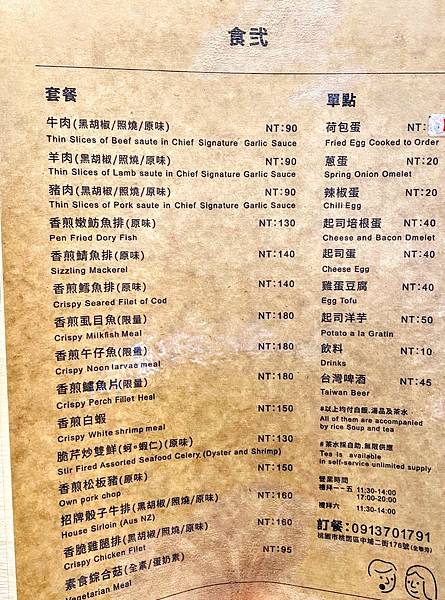 食弍
套餐
牛肉(黑胡椒/照燒/原味) NT:90
Thin Slices of Beef saute in Chief Signature Garlic Sauce
羊肉(黑胡椒/照燒/原味) NT:90
Thin Slices of Lamb saute in Chief Signature Garlic Sauce
豬肉(黑胡椒/照燒/原味) NT:90
Thin Slices of Pork saute in Chief Signature Garlic Sauce
香煎嫩魴魚排(原味) NT:130
Pen Fried Dory Fish
香煎鯖魚排(原味) NT:140
Sizzling Mackerel
香煎鱈魚排(原味) NT:140
Crispy Seared Filet of Cod
香煎虱目魚(限量) NT:180
Crispy Milkfish Meal
香煎午仔魚(限量) NT:180
Crispy Noon larvae meal
香煎鱸魚片(限量) NT:180
Crispy Perch Fillet Heal
香煎白蝦 NT:150
Crispy White shrimp meal
脆芹炒雙鮮(蚵。蝦仁)(原味) NT:130
Stir Fired Assorted Seafood Celery,(Oyster and Shrimp)
香煎松板豬(原味) NT:150
Own pork chop
招牌骰子牛排(黑胡椒/照燒/原味) NT:160
House Sirloin (Aus NZ)
香脆雞腿排(黑胡椒/照燒/原味) NT:160
Crispy Chicken Filet
素食綜合菇(全素/蛋奶素) NT:95
Vegetarian Meal
單點
荷包蛋 NT:
Fried Egg Cooked to Order
蔥蛋 NT:20
Spring Onion Omelet
辣椒蛋 NT:20
Chili Egg
起司培根蛋 NT:40
Cheese and Bacon Dmelet
起司蛋 NT:40
Cheese Egg
雞蛋豆腐 NT:40
Egg Tofu
起司洋芋 NT:50
Potato a la Gratin
飲料 NT:10
Drinks
台灣啤酒 NT:45
Taiwan Beer
#以上均付白飯.湯品及茶水
All of them are accompanied
by rice Soup and tea
#茶水採自助.無限供應
Tea is available
in self-service unlimited supply
營業時間
禮拜一~五 11:30-14:00
17:00-20:00
禮拜六 11:30-14:00
訂餐:0913701791
桃園市桃園區中埔二街176號(全聯旁)